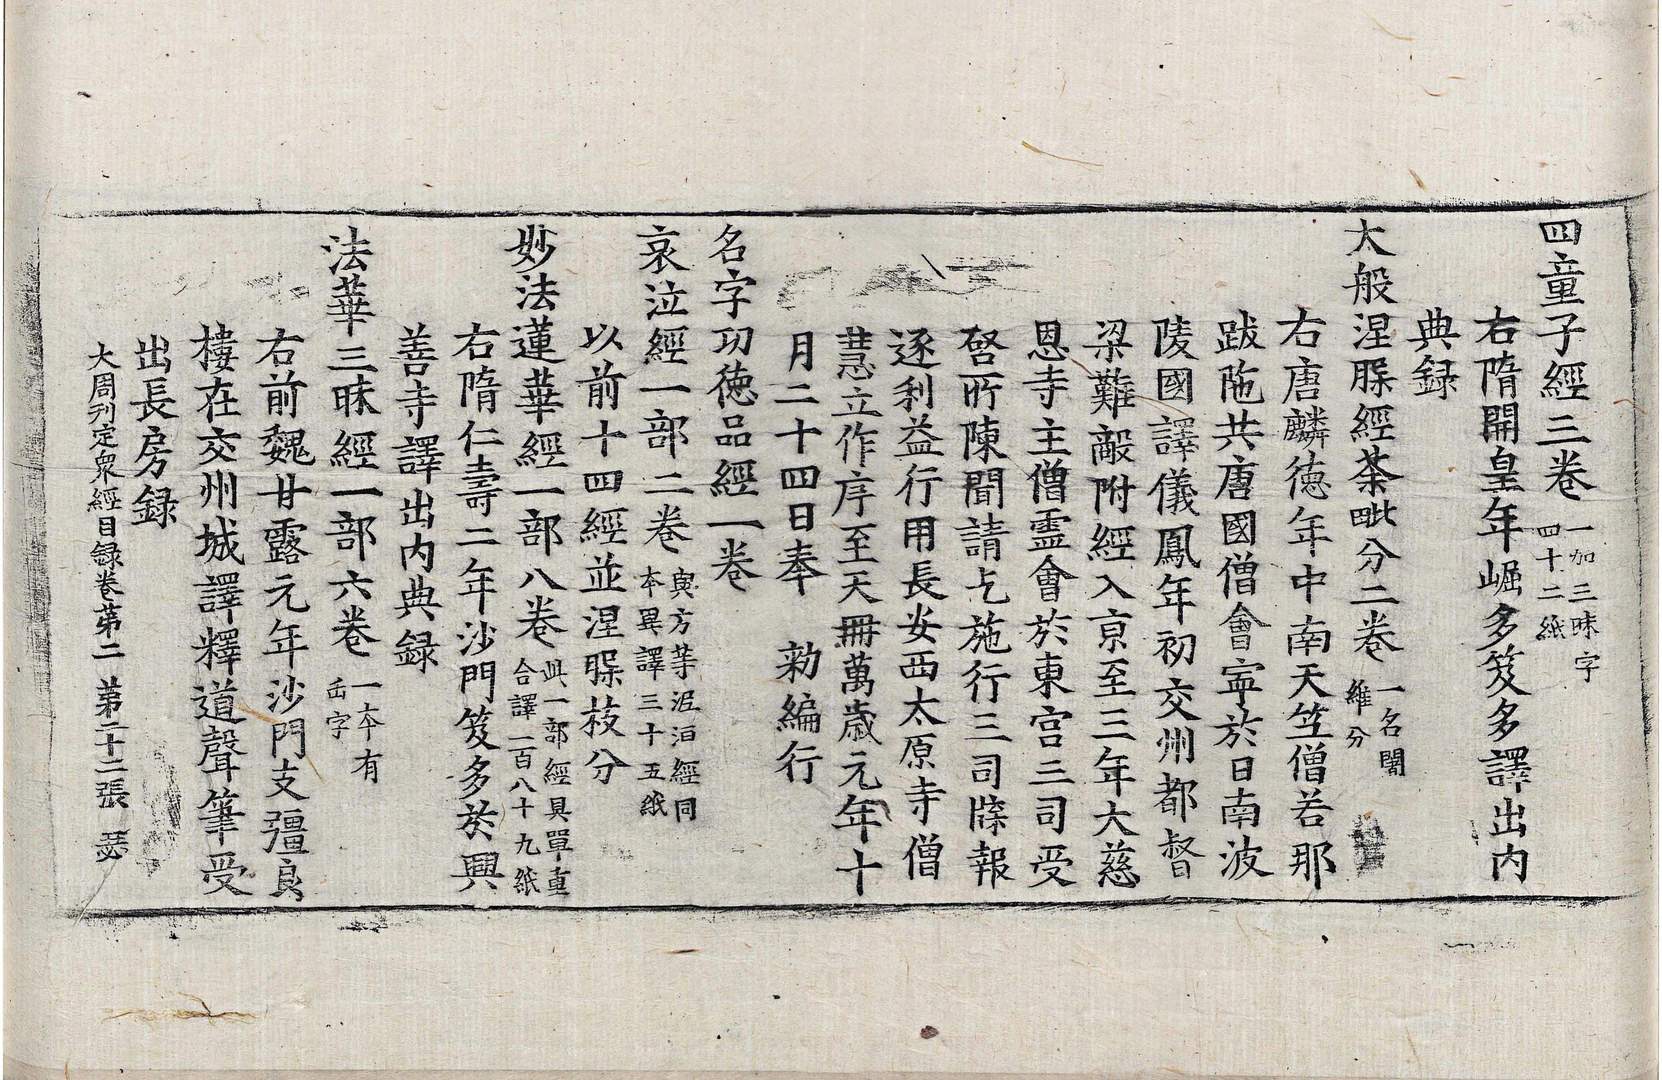 四童子經三卷 一加三昧字 四十二紙
右隋開皇年崛多笈多譯出内
典録
大般涅槃經荼毗分二卷 一名闍 維分
右唐麟德年中南天竺僧若那
跋陁共唐國僧會寧於日南波
陵國譯儀鳳年初交州都督
梁難敵附經入京至三年大慈
恩寺主僧霊會於東宫三司受
啓所陳聞請乞施行三司牒報
逐利益行用長安西太原寺僧
慧立作序至天冊萬歳元年十
月二十四日奉 勑編行
名字功德品經一卷
哀泣經一部二卷 與方等泥洹經同 本異譯三十五紙
以前十四經並涅槃枝分
妙法蓮華經一部八卷 此一部經具單重 合譯一百八十九紙
右隋仁壽二年沙門笈多於興
善寺譯出内典録
法華三昧經一部六卷 一本有 正字
右前魏甘露元年沙門支彊良
樓在交州城譯釋道聲筆受
出長房録
大周刋定衆經目録卷苐二 苐二十二張 瑟